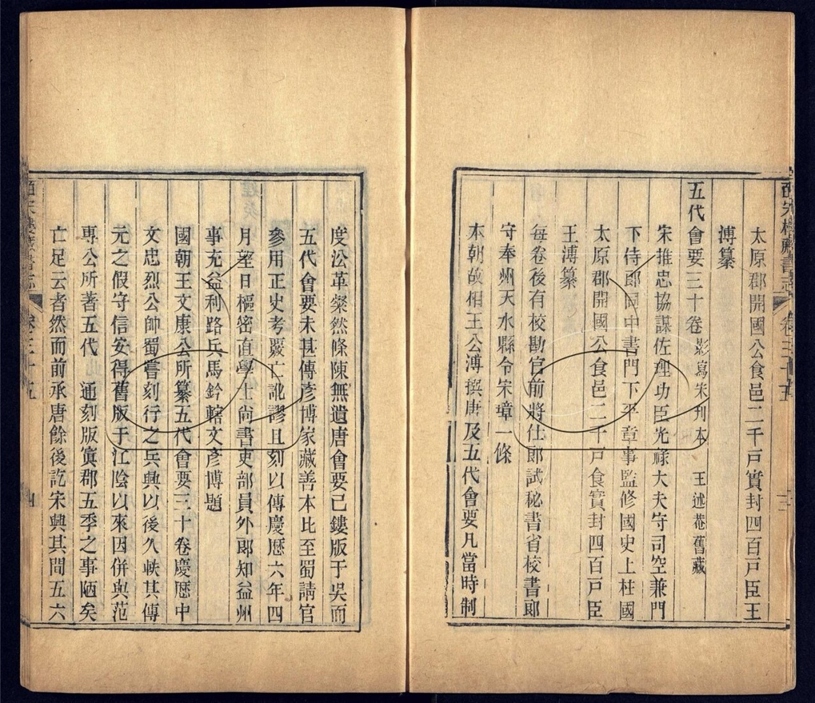 皕宋樓藏書志 卷三十五 三
太原郡開國公食邑二千戸實封四百戸臣王
溥纂
五代會要三十卷影寫宋刊本 王述菴舊藏
宋推忠協謀佐理功臣光祿大夫守司空兼門
下侍郎同中書門下平章事監修國史上柱國
太原郡開國公食邑二千戸食實封四百戸臣
王溥纂
每卷後有校勘官前將仕郎試秘書省校書郎
守奉州天水縣令宋璋一條
本朝故相王公溥撰唐及五代會要凡當時制
度沿革粲然條陳無遺唐會要已鏤版于吳而
五代會要未甚傳彥博家藏善本比至蜀請官
參用正史考覈亡訛謬且刻以傳慶厯六年四
月望日樞密直學士尚書吏部員外郎知益州
事充益利路兵馬鈐轄文彥博題
國朝王文康公所纂五代會要三十卷慶厯中
文忠烈公帥蜀嘗刻行之兵興以後久軼其傳
元之假守信安得舊版于江陰以來因併與范
專公所著五代 通刻版寘郡五季之事陋矣
亡足云者然而前承唐餘後訖宋興其間五六
皕宋樓藏書志 卷三十五 四